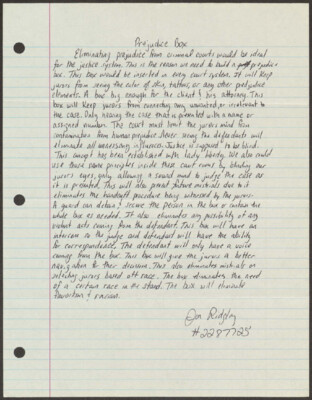 Prejudice Box
Eliminating prejudice from criminal courts would be ideal
for the justice system. This is the reason we need to build a prejudice
box. This box would be inserted in every court system. It will keep
jurors from seeing the color of skin, tattoos, or any other prejudice
elements. A box big enough for the client & his attorney. This
box will keep jurors from considering any unwanted, or irrelevant to
the case. Only hearing the case that is presented with a name or
assigned number. The court must limit the jurors mind from
contamination from human prejudice. Never seeing the defendants will
eliminate all unnecessary influences. Justice is suppose to be blind.
This concept has been established with lady liberty. We also could
use those same principles inside these court rooms by blinding our
jurors eyes, only allowing a sound mind to judge the case as
it is presented. This will also prevent future mistrials due to it
eliminates the handcuff procedure being witnessed by the jurors.
A guard can detain & secure the person in the box or contain the
whole box as needed. It also eliminates any possibility of any
violent acts coming from the defendant. This box will have an
intercom so the judge and defendant will have the ability
for correspondence. The defendant will only have a voice
coming from the box. This box will give the jurors a better
navigation to their decision. This also eliminates mistrials on
selecting jurors based off race. The box eliminates the need
of a certain race on the stand. The box will eliminate
favoritism & racism.
Jon Ridgley
#2287725